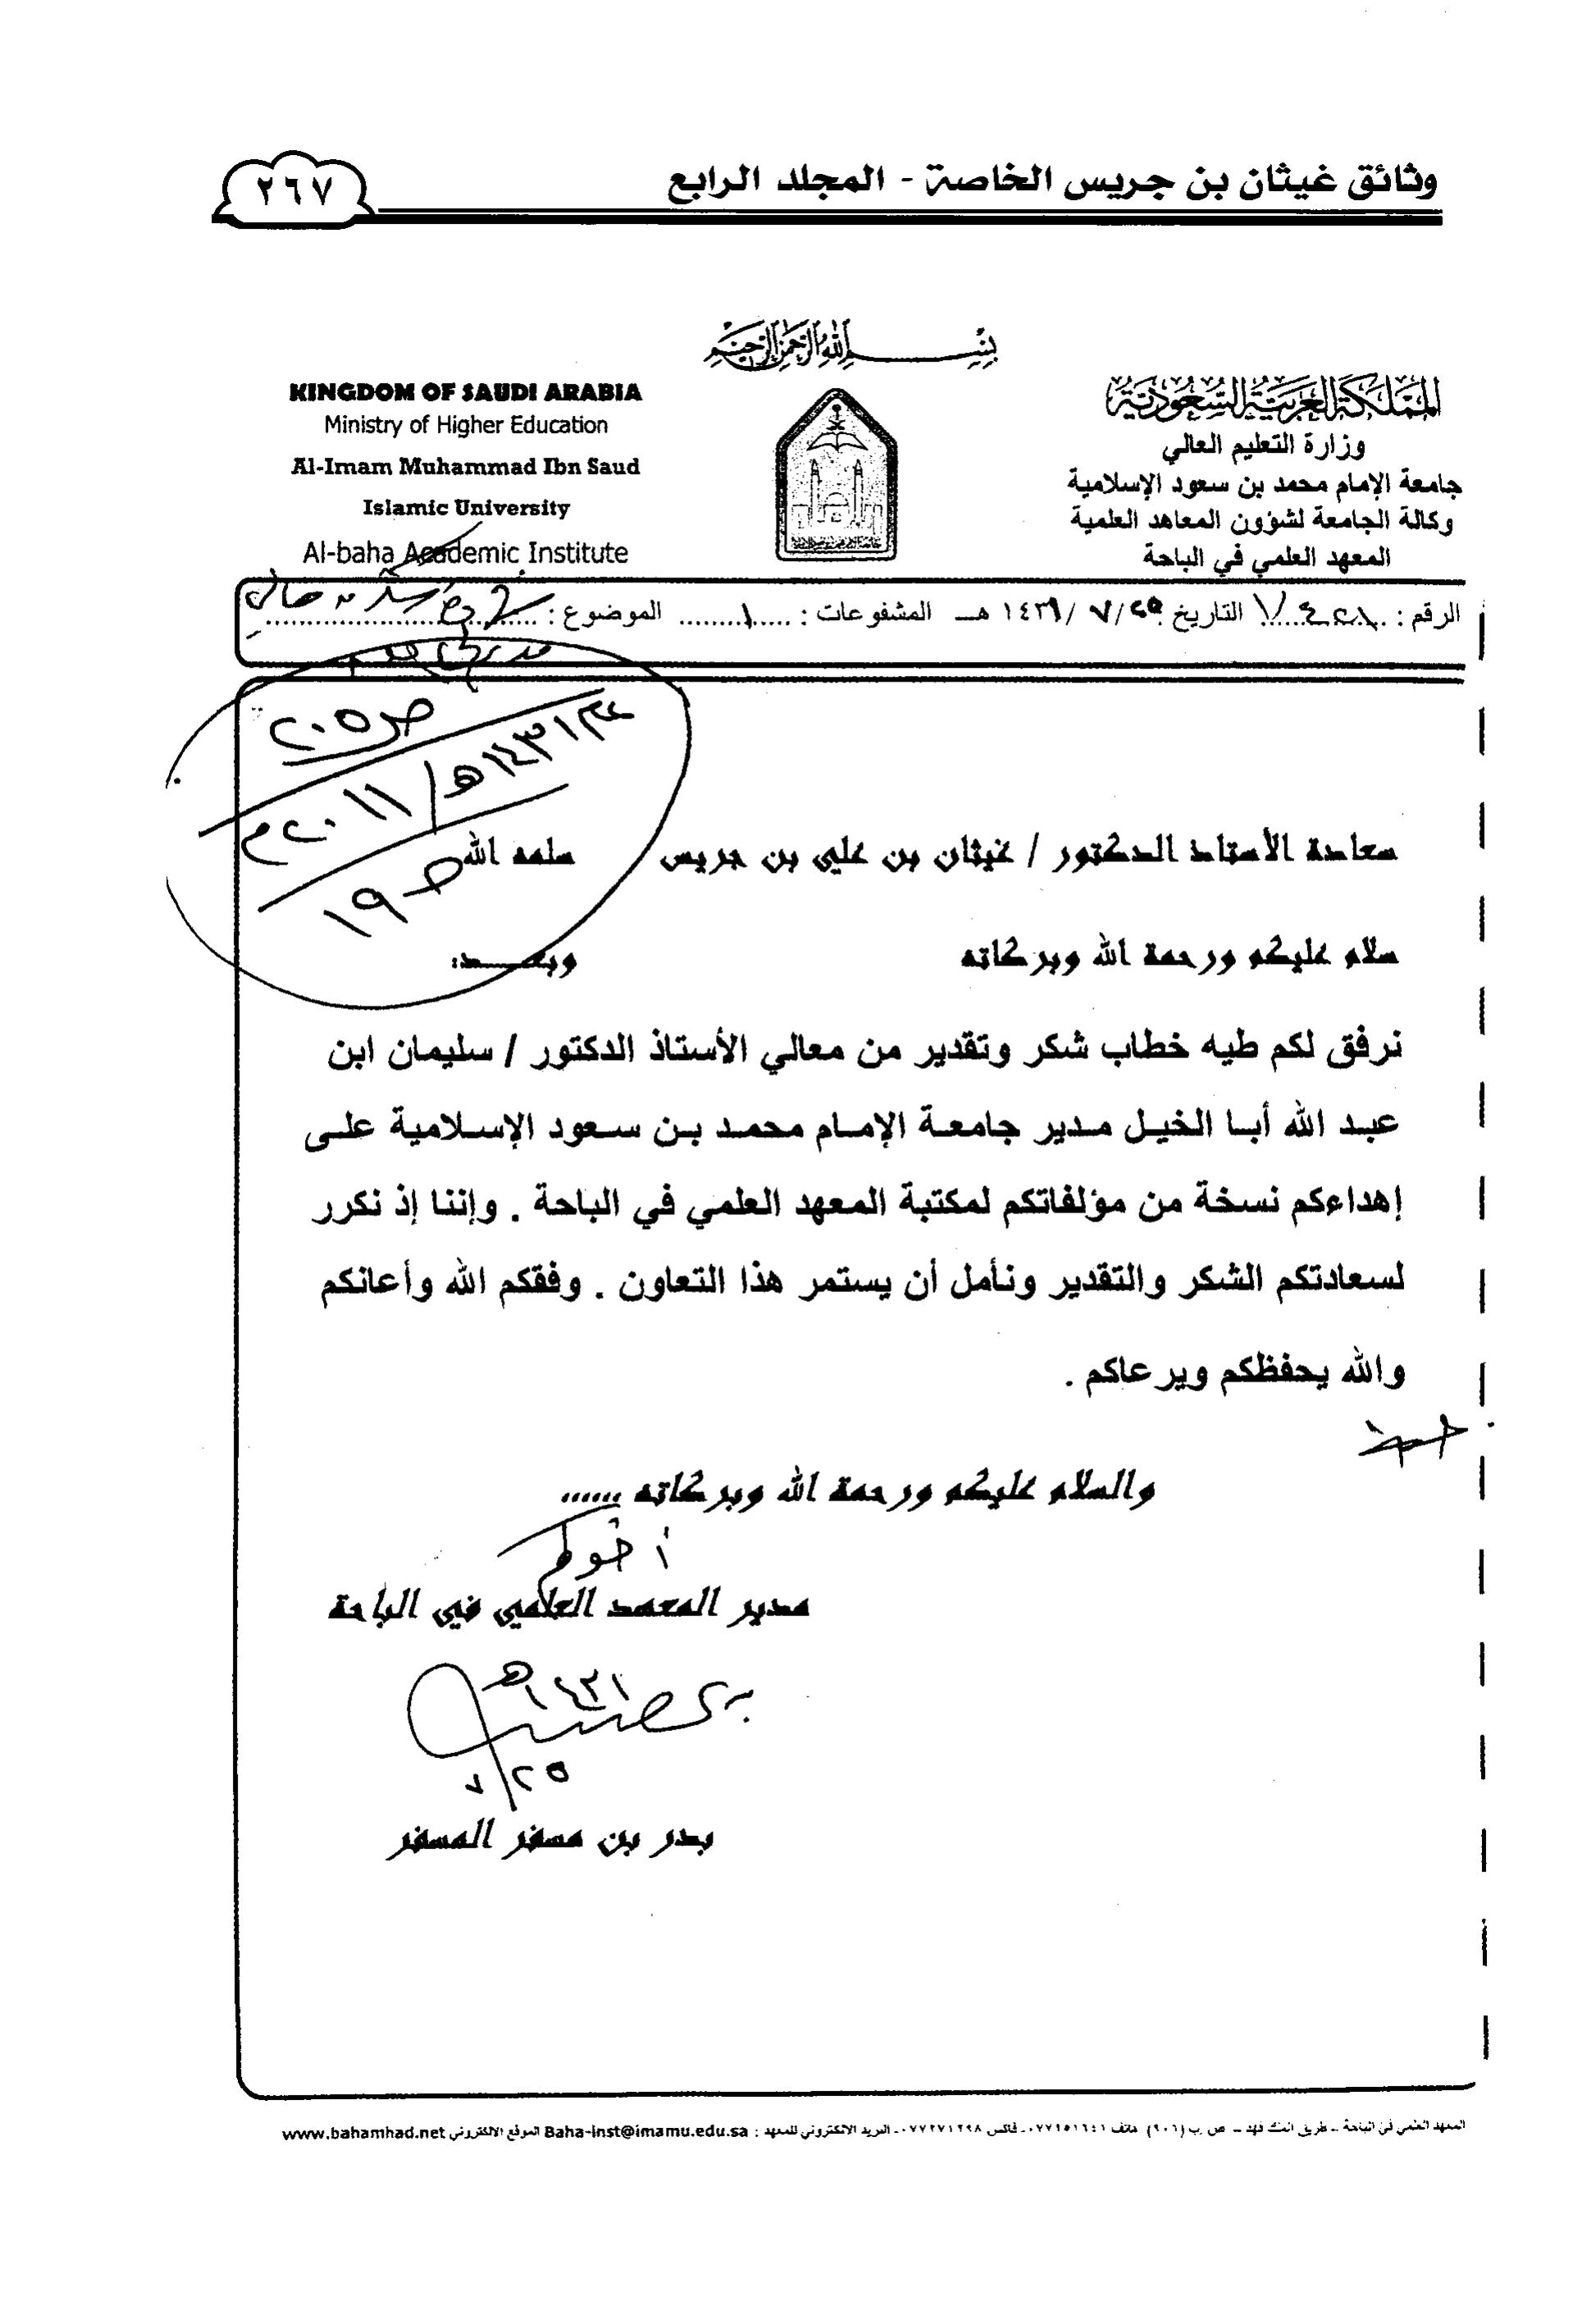 وثائق غيثان بن جريس الخاصة - المجلد الرابع
٢٦٧
بسم الله الرحمن الرحيم
المملكة العربية السعودية
وزارة التعليم العالي
جامعة الإمام محمد بن سعود الإسلامية
وكالة الجامعة لشؤون المعاهد العلمية
المعهد العلمي في الباحة
KINGDOM OF SAUDI ARABIA
Ministry of Higher Education
Al-Imam Muhammad Ibn Saud
Islamic University
Al-baha Academic Institute
الرقم : التاريخ ٢٥/ ٧/ ١٤٣١ هـ المشفوعات : ١ الموضوع :
ص٢٠٥
١٤٣١هـ/
٢٠١١م
ص١٩
معادة الأستاذ الدكتور / غيثان بن علي بن جريس سلمه الله
سلام عليكم ورحمة الله وبركاته وبعـــد:
نرفق لكم طيه خطاب شكر وتقدير من معالي الأستاذ الدكتور / سليمان ابن
عبد الله أبا الخيل مدير جامعة الإمام محمد بن سعود الإسلامية على
إهداءكم نسخة من مؤلفاتكم لمكتبة المعهد العلمي في الباحة . وإننا إذ نكرر
لسعادتكم الشكر والتقدير ونأمل أن يستمر هذا التعاون . وفقكم الله وأعانكم
والله يحفظكم ويرعاكم .
والسلام عليكم ورحمة الله وبركاته ......
أخوكم
مدير المعهد العلمي في الباحة
١٤٣١هـ
٧/٢٥
بدر بن مسفر المسفر
المعهد العلمي في الباحة – طريق الملك فهد – ص ب (٩٠٦) هاتف ٠٧٧٢٥١٦٤١ - فاكس ٠٧٧٢٧١٢٩٨ - البريد الالكتروني للمعهد : Baha-inst@imamu.edu.sa الموقع الالكتروني www.bahamhad.net